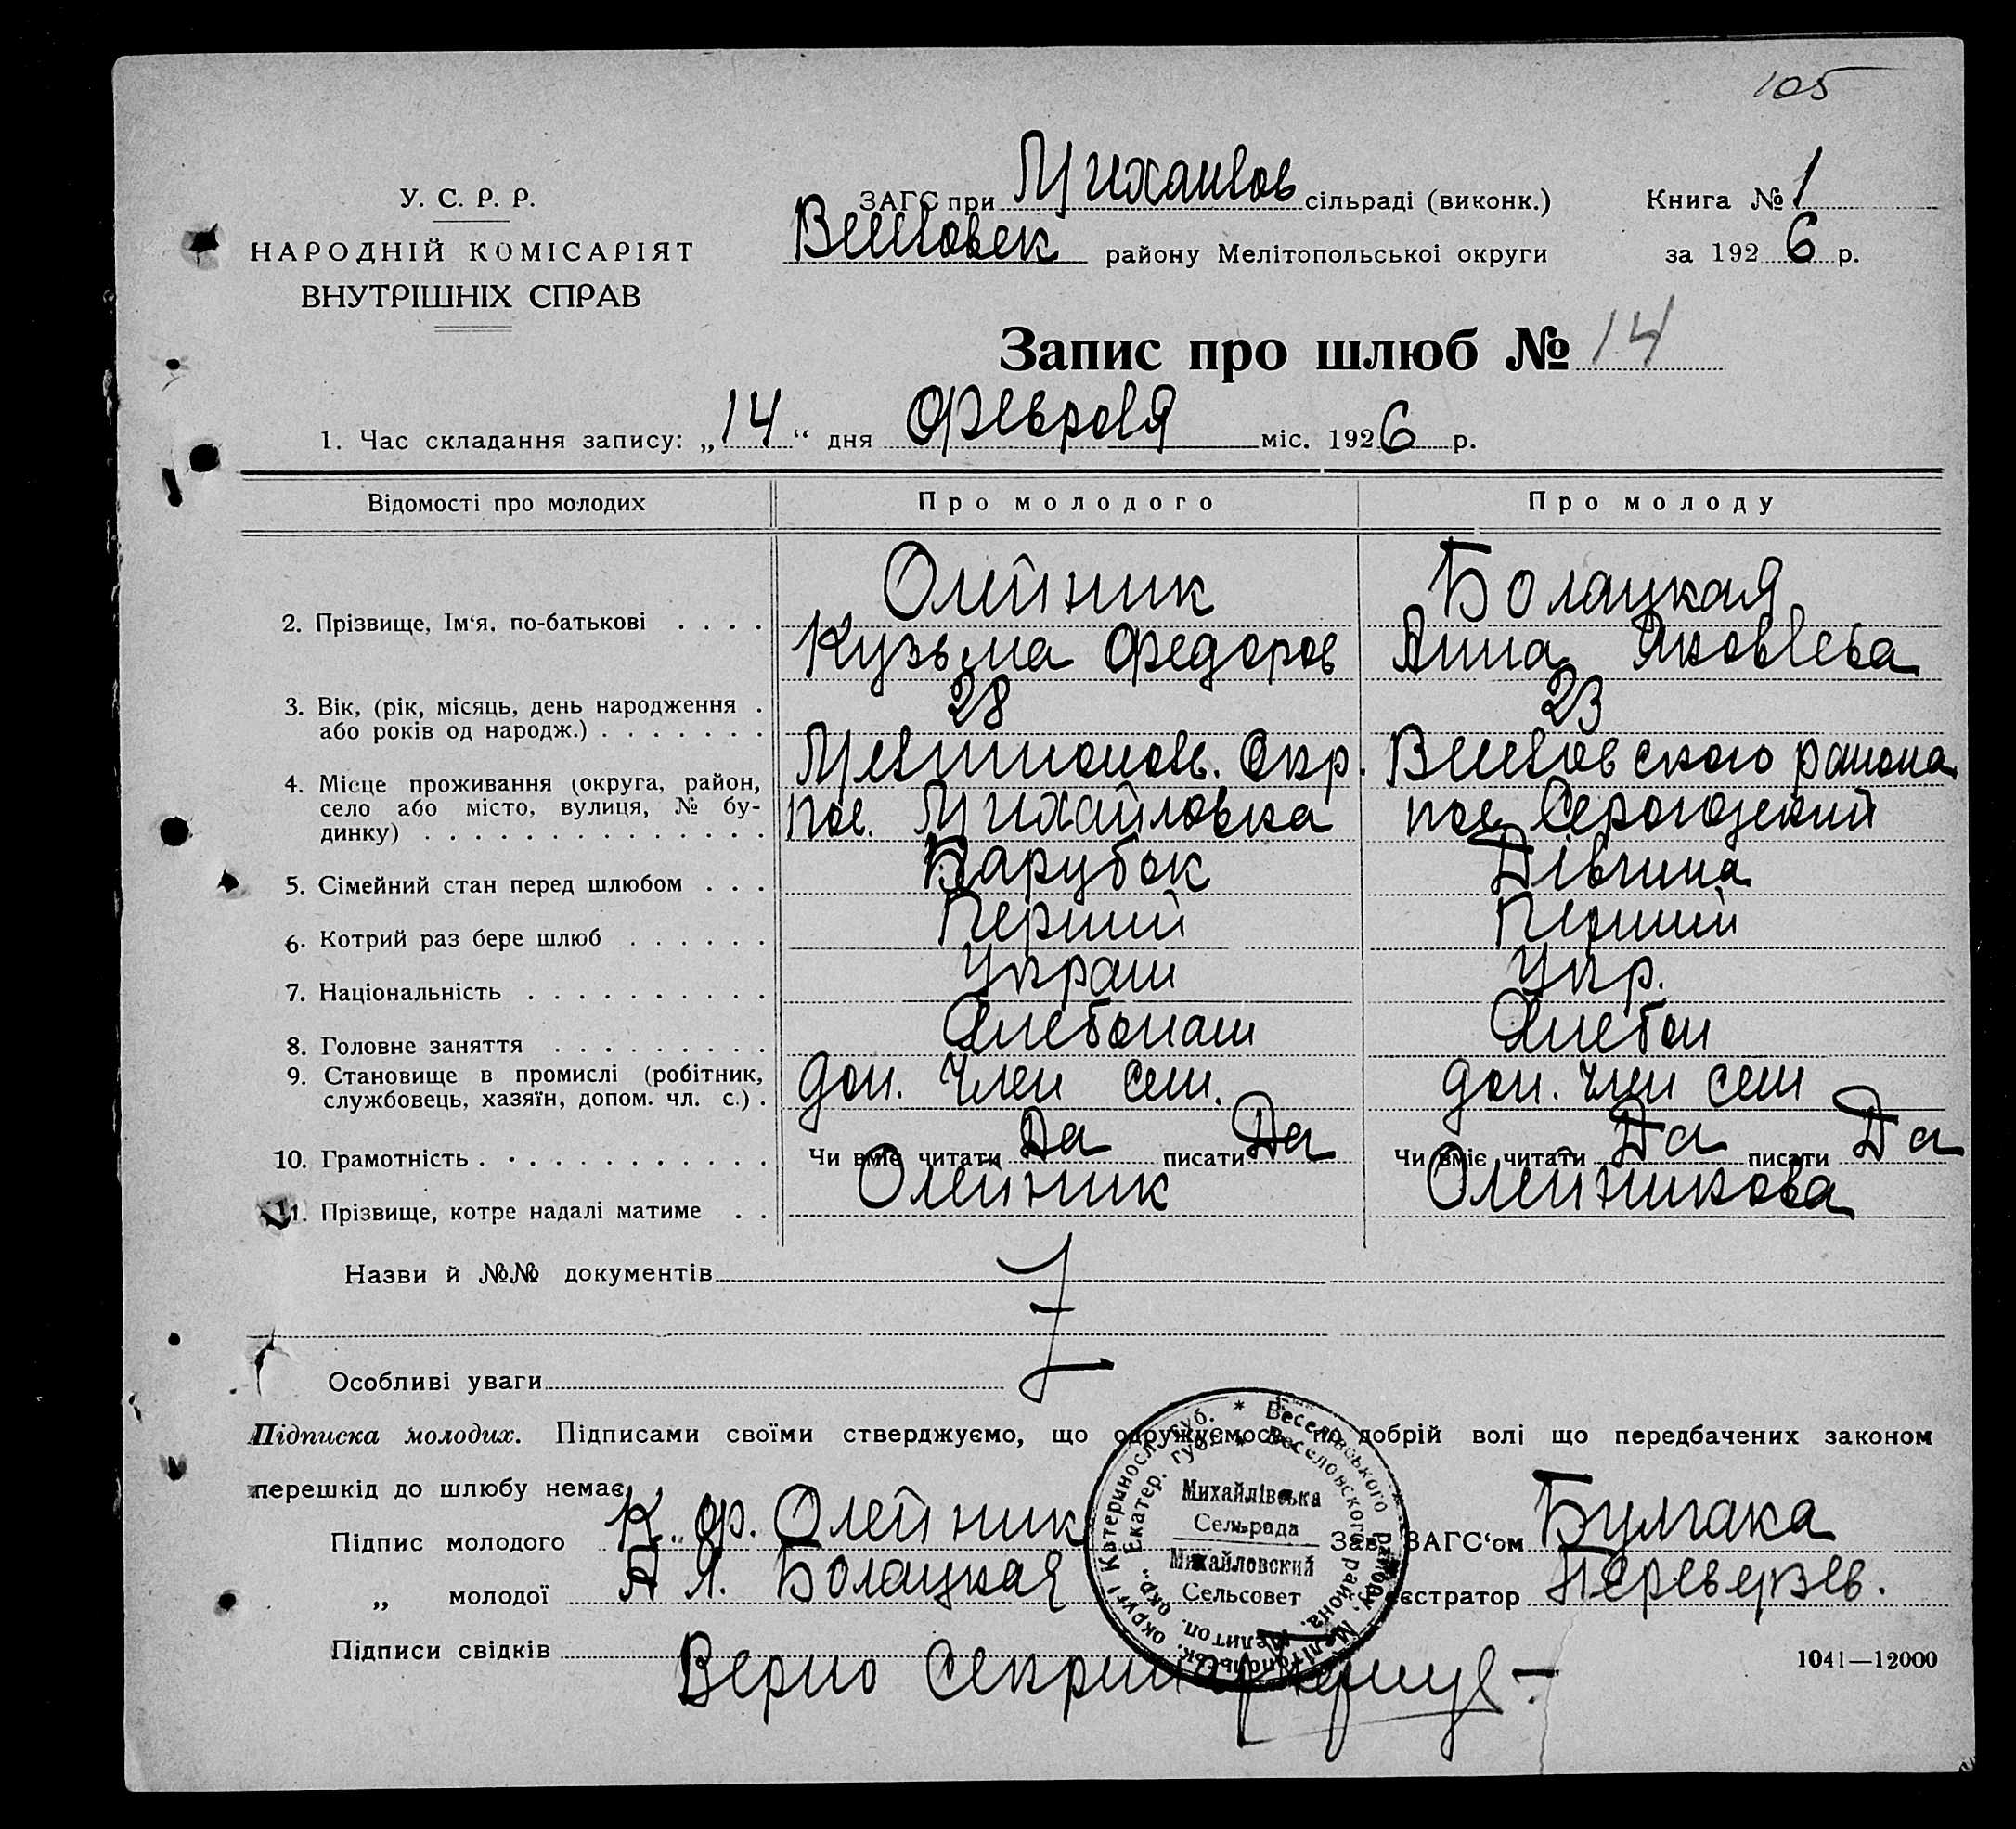 105
У. С. Р. Р.
НАРОДНІЙ КОМІСАРІЯТ
ВНУТРІШНІХ СПРАВ
ЗАГС при Михайлов сільраді (виконк.)
Веселовск району Мелітопольської округи
Книга № 1
за 1926 р.
Запис про шлюб № 14
1. Час складання запису: „14“ дня Февраля міс. 1926 р.
Відомості про молодих Про молодого Про молоду
2. Прізвище, Ім‘я, по-батькові . . . .
Олейник
Кузьма Федоров
Болацкая
Анна Яковлева
3. Вік, (рік, місяць, день народження .
або років од народж.) . . . . . . .
28
23
4. Місце проживання (округа, район,
село або місто, вулиця, № бу-
динку) . . . . . . . . . . . . . . .
Мелитопольс. Окр.
пос. Михайловка
Веселовского района
пос. Серогозский
5. Сімейний стан перед шлюбом . . . Парубок Дівчина
6. Котрий раз бере шлюб . . . . . . Перший Перший
7. Національність . . . . . . . . . . Украин Укр.
8. Головне заняття . . . . . . . . . Хлебопаш Хлебоп
9. Становище в промислі (робітник,
службовець, хазяїн, допом. чл. с.) .
доп. Член сем.
доп. член сем
10. Грамотність . . . . . . . . . . . . Чи вміє читати Да писати Да Чи вміє читати Да писати Да
11. Прізвище, котре надалі матиме . . Олейник Олейникова
Назви й №№ документів
Особливі уваги
Підписка молодих. Підписами своїми стверджуємо, що одружуємось по добрій волі що передбачених законом
перешкід до шлюбу немає.
Підпис молодого К. Ф. Олейник
„ молодої А Я. Болацкая
Підписи свідків
Зав. ЗАГС‘ом Булгака
Реєстратор Переверзев.
Верно Секрит
Михайлівська
Сельрада
Михайловский
Сельсовет
* Веселівського району, Мелітопольськ. округи Катеринослав. губ.
* Веселовского района, Мелитоп. окр., Екатер. губ.
1041—12000